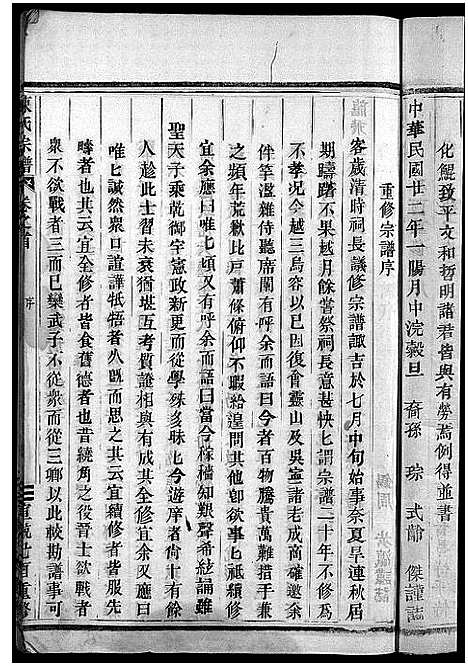 化鯉致平文和哲明諸君皆與有勞焉例得並書
中華民國廿二年一陽月中浣穀旦 裔孫 琮 式 傑謹誌
重修宗譜序
客歲清時祠長議修宗譜諏吉於七月中旬始事奈夏旱連秋居
期躊躇不果越月餘嘗祭祠長意甚怏乜謂宗譜二十年不修爲
不孝況今越三烏容以已因復會靈山及吳寗諸老成商確邀余
伴竽濫雜侍聽席闌有呼余而語曰今者百物騰貴萬難措手兼
之頻年荒歉比戶蕭條俯仰不暇給湟問其他余應曰事乜祗續修
宜余應曰唯乜頃又有呼余而語曰當今稼穡知艱聲希絃誦雖
聖天子乘乾御宇憲政新更而從學殊多昧乜今遊庠者尙十有餘
人趁此士習未衰猶堪互考質證相與有成其全修宜余又應曰
唯乜誠然衆口諠譁牴牾者久旣而思之其云宜續修者皆服先
疇者也其云宜全修者皆食舊德者也昔繞角之役晉士欲戰者
衆不欲戰者三而已欒武子不從衆而從三卿以此較勘譜事可
陳氏宗譜 卷之首 序